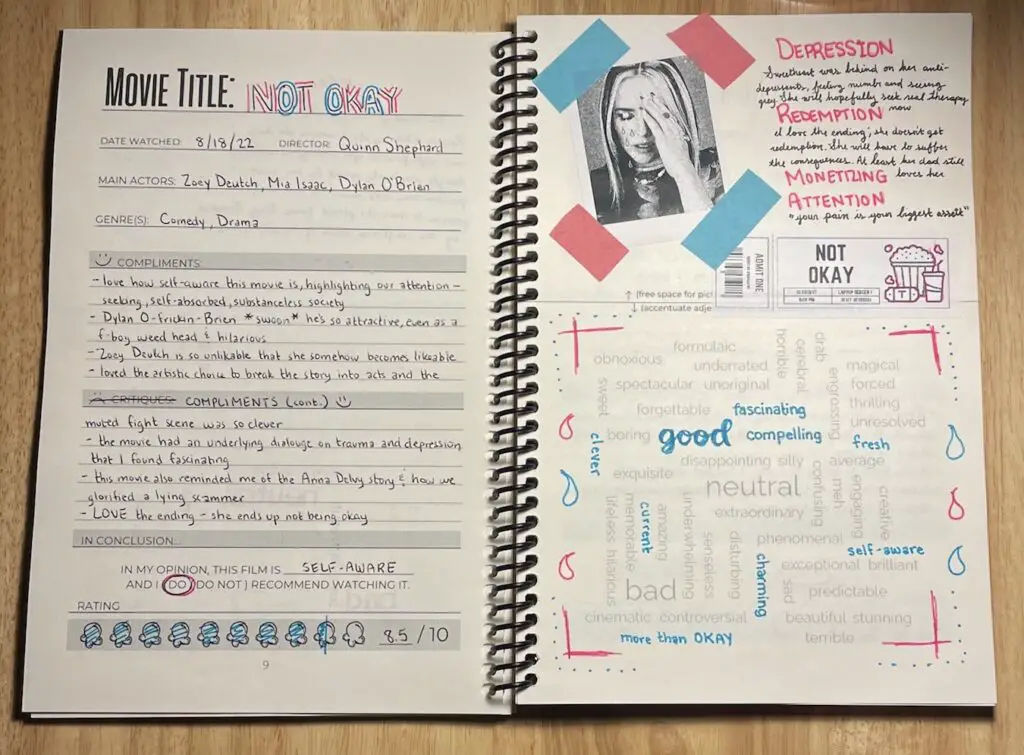 MOVIE TITLE: NOT OKAY
DATE WATCHED: 8/18/22 DIRECTOR: Quinn Shephard
MAIN ACTORS: Zoey Deutch, Mia Isaac, Dylan O'Brien
GENRE(S): Comedy, Drama
COMPLIMENTS:
- love how self-aware this movie is, highlighting our attention-
seeking, self-absorbed, substanceless society
- Dylan O-frickin-Brien *swoon* he's so attractive, even as a
f-boy weed head & hilarious
- Zoey Deutch is so unlikable that she somehow becomes likeable
- loved the artistic choice to break the story into acts and the
CRITIQUES: COMPLIMENTS (cont.)
muted fight scene was so clever
- the movie had an underlying dialouge on trauma and depression
that I found fascinating
- this movie also reminded me of the Anna Delvy story & how we
glorified a lying scammer
- LOVE the ending - she ends up not being okay
IN CONCLUSION...
IN MY OPINION, THIS FILM IS SELF-AWARE
AND I (DO/DO NOT) RECOMMEND WATCHING IT.
RATING
8.5 / 10
9
DEPRESSION
Sweetheart was behind on her anti-
depressants, feeling numb and seeing
grey. She will hopefully seek real therapy
now
REDEMPTION
I love the ending; she doesn't get
redemption. She will have to suffer
the consequences. At least her dad still
loves her
MONETIZING
ATTENTION
"your pain is your biggest asset"
ADMIT ONE
NOT
OKAY
↑ (free space for pict
↓ (accentuate adje
formulaic
horrible
cerebral
drab
obnoxious
underrated
magical
sweet
spectacular
unoriginal
engrossing
forced
thrilling
forgettable
fascinating
unresolved
boring
good
compelling
fresh
clever
disappointing
silly
average
exquisite
neutral
confusing
meh
engaging
creative
lifeless
hilarious
memorable
current
amazing
underwhelming
extraordinary
senseless
disturbing
phenomenal
self-aware
charming
exceptional
brilliant
bad
sad
predictable
cinematic
controversial
beautiful
stunning
more than OKAY
terrible